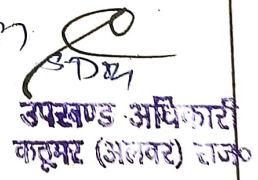 SDM
उपखण्ड अधिकारी
कठूमर (अलवर) राज०